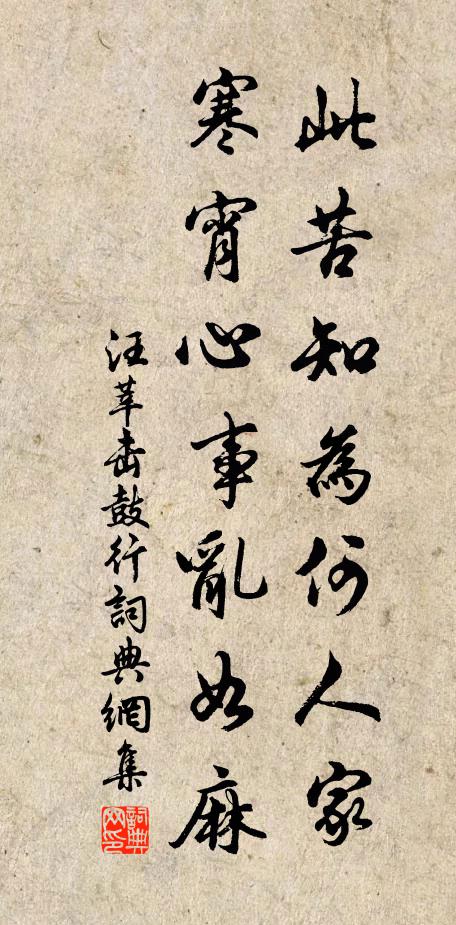 此苦知為何人家
寒宵心事亂如麻
汪莘击鼓行詞典網集
詞典網印